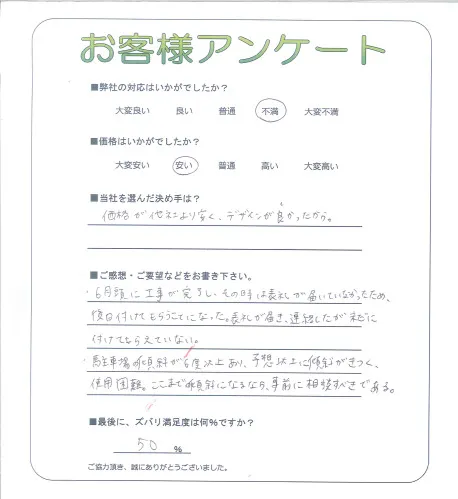 お客様アンケート
■弊社の対応はいかがでしたか？
大変良い 良い 普通 不満 大変不満
■価格はいかがでしたか？
大変安い 安い 普通 高い 大変高い
■当社を選んだ決め手は？
価格が他社より安く、デザインが良かったから。
■ご感想・ご要望などをお書き下さい。
・6月頭に工事が完了し、その時は表札が届いていなかったため、
後日付けてもらうことになった。表札が届き、連絡したが未だに
付けてもらえていない。
・駐車場の傾斜が6度以上あり、予想以上に傾斜がきつく、
使用困難。ここまで傾斜になるなら、事前に相談すべきである。
■最後に、ズバリ満足度は何%ですか？
50 %
ご協力頂き、誠にありがとうございました。